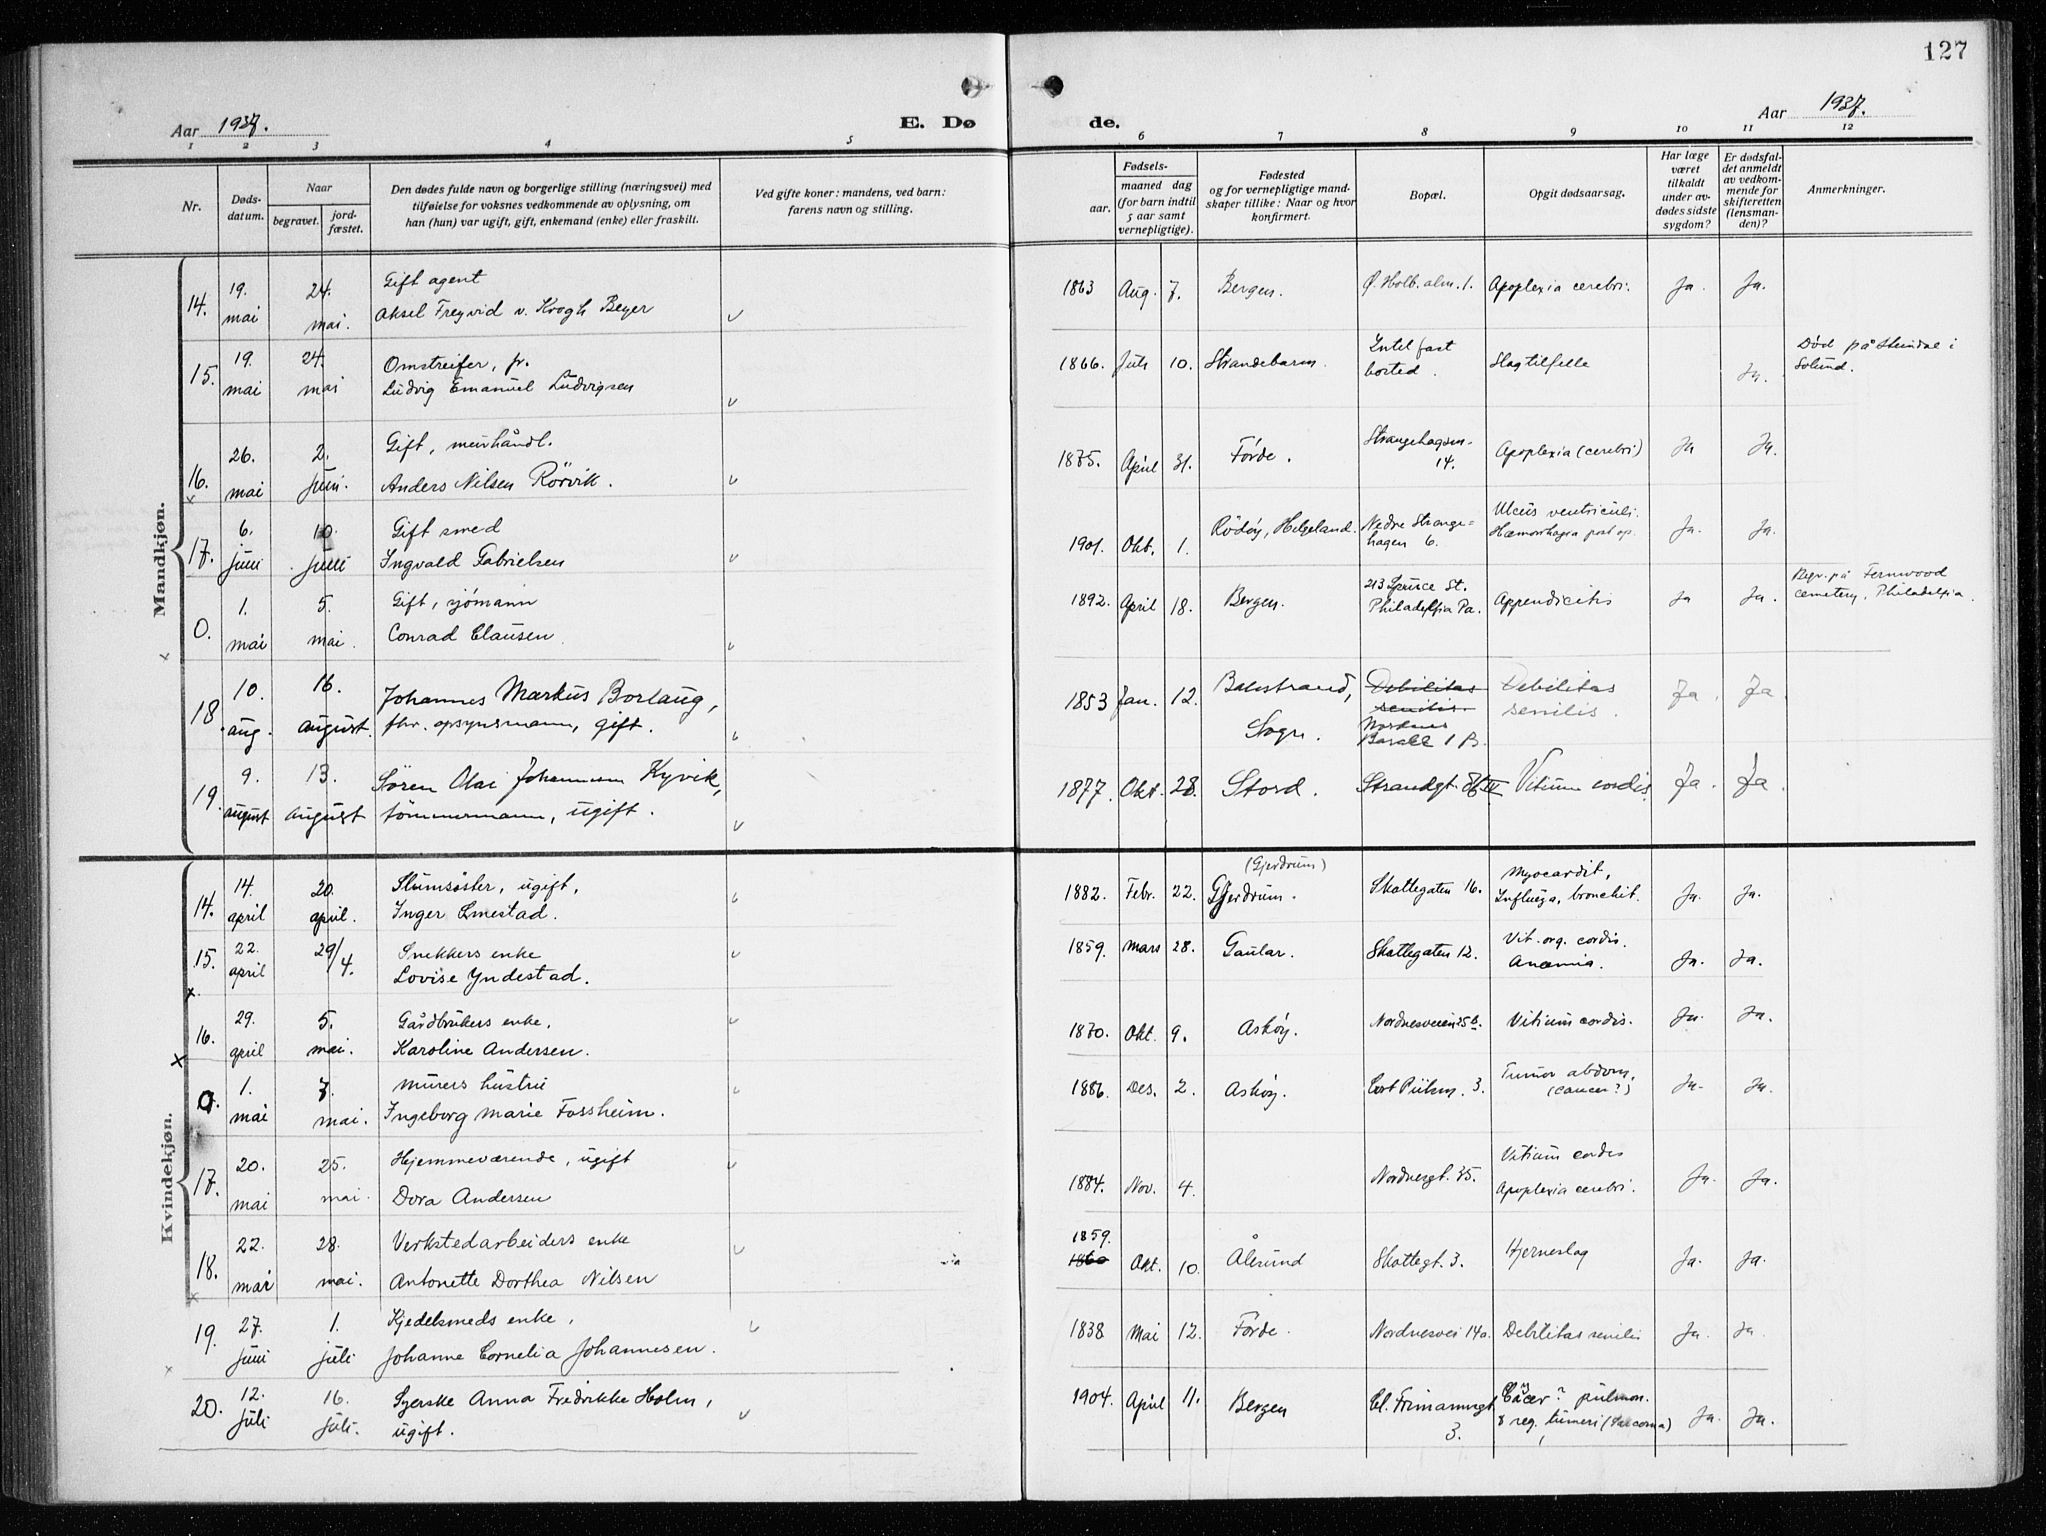 127
Aar 1937.
E. Dø
de.
Aar 1937.
1 2 3 4 5 6 7 8 9 10 11 12
Nr.
Døds-
datum.
Naar
begravet.
jord-
fæstet.
Den dødes fulde navn og borgerlige stilling (næringsvei) med
tilføielse for voksnes vedkommende av oplysning, om
han (hun) var ugift, gift, enkemand (enke) eller fraskilt.
Ved gifte koner: mandens, ved barn:
farens navn og stilling.
Fødsels-
aar.
maaned dag
(for barn indtil
5 aar samt
vernepligtige).
Fødested
og for vernepligtige mand-
skaper tillike: Naar og hvor
konfirmert.
Bopæl.
Opgit dødsaarsag.
Har læge
været
tilkaldt
under av-
dødes sidste
sygdom?
Er dødsfal-
det anmeldt
av vedkom-
mende for
skifteretten
(lensman-
den)?
Anmerkninger.
Mandkjøn.
14. 19. mai 24. mai. Gift agent
Aksel Freyvid v. Krogh Beyer
1863 Aug. 7. Bergen. Ø. Holb. alm. 1. Apoplexia cerebri. Ja. Ja.
15. 19. mai 24. mai Omstreifer, fr.
Ludvig Emanuel Ludvigsen
1866 Juli 10. Strandebarm. Intet fast
bosted. Slagtilfelle Ja. Død på Steindal i
Solund.
16. 26. mai 2. juni. Gift, murhåndl.
Anders Nilsen Rörvik.
1875. April 31. Förde. Strangehagen
14. Apoplexia (cerebri) Ja Ja.
17. 6. juni 10. juni Gift smed
Ingvald Fabrielsen
1901. Okt. 1. Rödöy, Helgeland. Nedre Strange-
hagen 6. Ulcus ventriculi.
Hæmorrhagia post op. Ja. Ja.
0. 1. mai 5. mai. Gift, sjömann
Conrad Clausen
1892. April 18. Bergen. 213 Spruce St.
Philadelfia Pa. Appendicitis Ja Ja. Begr. på Fernwood
cemetery, Philadelfia.
18. 10. aug. 16. august. Johannes Markus Borlaug,
fhv. opsynsmann, gift.
1853 Jan. 12. Balestrand,
Sogn. Debilitas
senilis.
Nordnes
Barakk 1 B. Debilitas
senilis. Ja. Ja
19. 9. august 13. august Sören Olai Johannesen Kyvik,
tömmermann, ugift.
1877. Okt. 28. Stord. Strandgt. 86 III Vitium cordis. Ja. Ja.
Kvindekjøn.
14. 14. april 20. april. Slumsöster, ugift,
Inger Emestad.
1882. Febr. 22. (Gjerdrum)
Gjerdrum. Skottegaten 16. Myocardit,
Influeza, bronchit. Ja. Ja.
15. 22. april 29/4. Snekkers enke
Lovise Yndestad.
1859. Mars 28. Gaular. Skottegaten 12. Vit. org. cordis.
Anæmia. Ja. Ja.
16. 29. april 5. mai. Gårdbrukers enke,
Karoline Andersen.
1870. Okt. 9. Asköy. Nordnesveien 25 b. Vitium cordis. Ja. Ja.
0. 1. mai 7. mai. Murers hustru
Ingeborg Marie Fossheim.
1886. Des. 2. Asköy. 3. Tumor abdom.
(cancer?) Ja. Ja.
17. 20. mai 25. mai. Hjemmeværende, ugift
Dora Andersen
1884. Nov. 4. Nordnesgt. 35. Vitium cordis
Apoplexia cerebri. Ja. Ja.
18. 22. mai 28. mai. Verkstedarbeiders enke
Antonette Dorthea Nilsen
1859.
1860 Okt. 10. Ålesund Skottegt. 3. Hjerneslag Ja. Ja.
19. 27. juni 1. juli Kjedelsmeds enke,
Johanne Cornelia Johannesen.
1838 Mai 12. Förde. Nordnesvei 14a. Debilitas senilis Ja. Ja.
20. 12. juli 16. juli. Syerske Anna Fredrikke Holm,
ugift.
1904. April 11. Bergen Cl. Frimannsgt.
3. ? pulmon.
& reg. (Sarcoma) Ja. Ja.